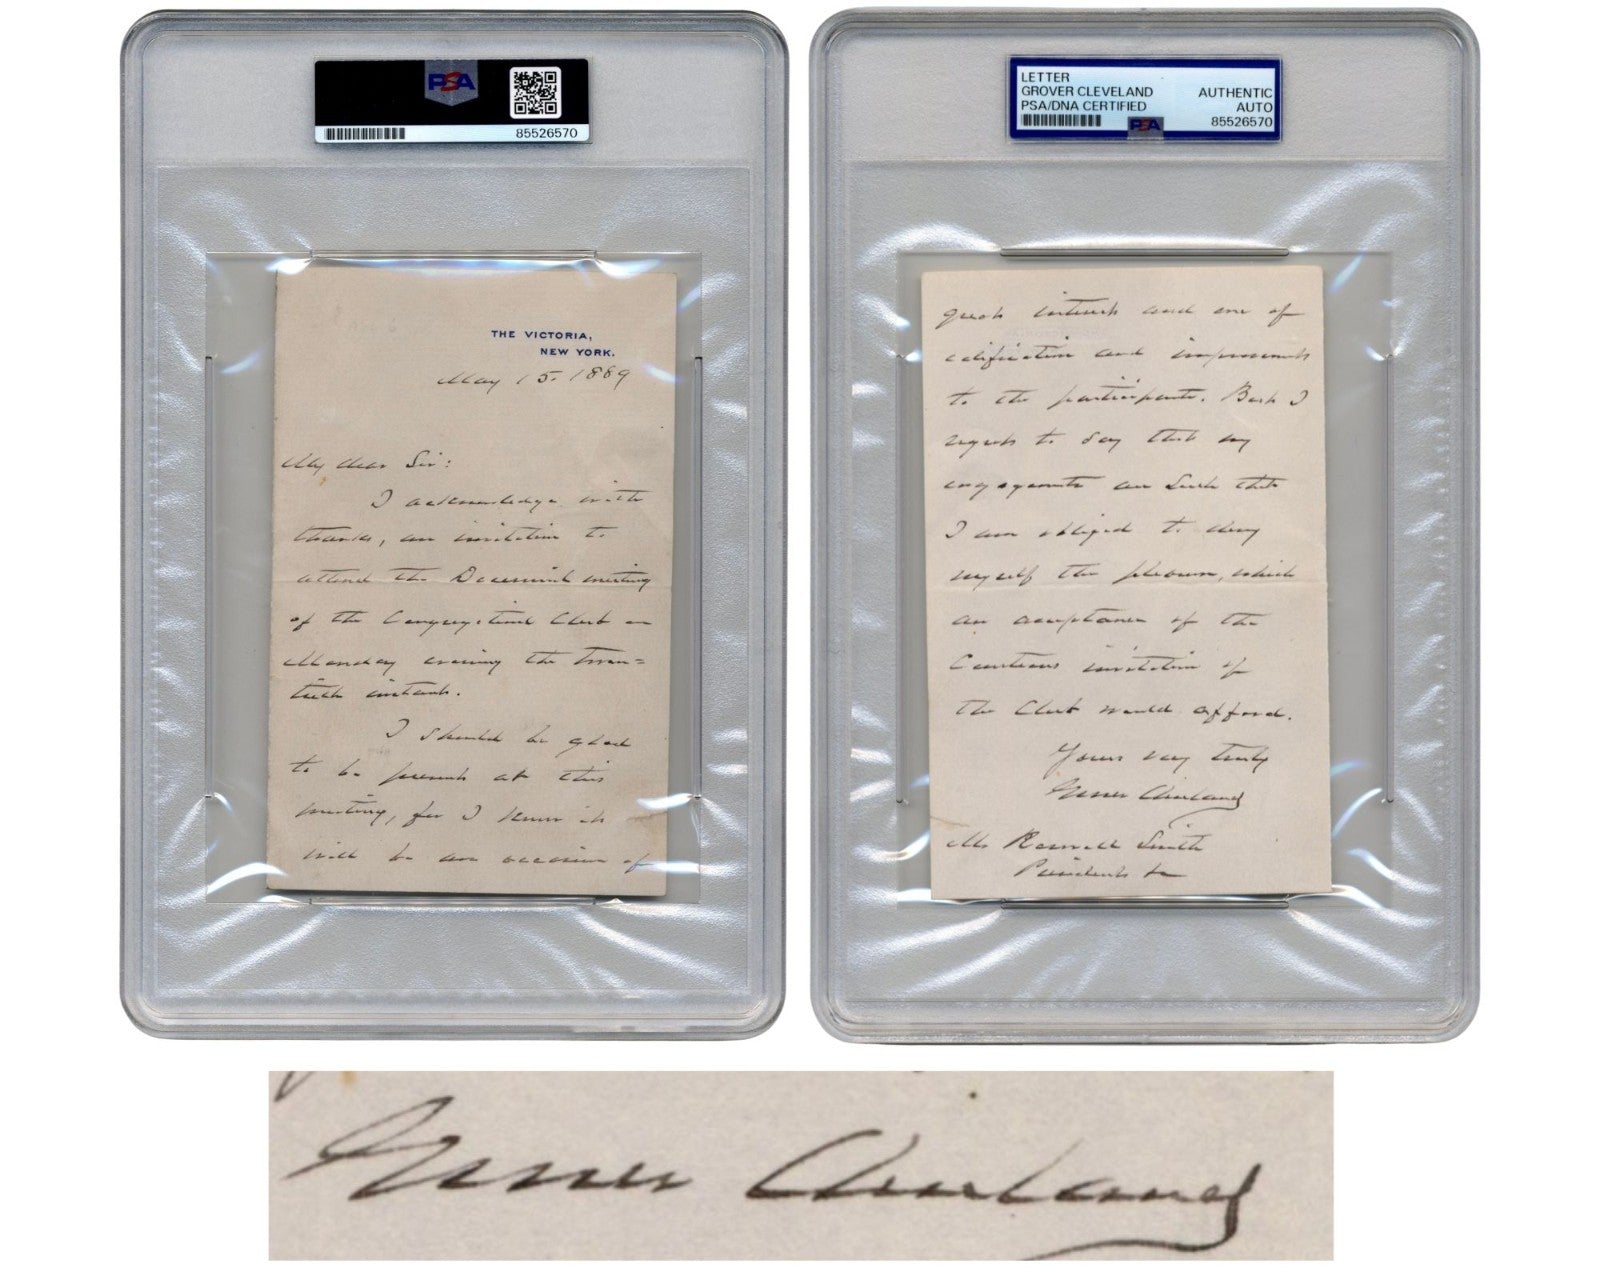 PSA
85526570
THE VICTORIA,
NEW YORK.
May 15. 1889
My dear Sir:
I acknowledge with
thanks, an invitation to
attend the meeting
of the Congregational Club on
Monday evening the twen=
tieth instant.
I should be glad
to be present at this
meeting, for I know it
will be an occasion of
LETTER
GROVER CLEVELAND
PSA/DNA CERTIFIED
AUTHENTIC
AUTO
85526570
PSA
great interest and one of
edification and improvement
to the participants. But I
regret to say that my
engagements are such that
I am obliged to deny
myself the pleasure, which
an acceptance of the
Courteous invitation of
the Club would afford.
Yours very truly
Grover Cleveland
Mr Roswell Smith
President &c
Grover Cleveland